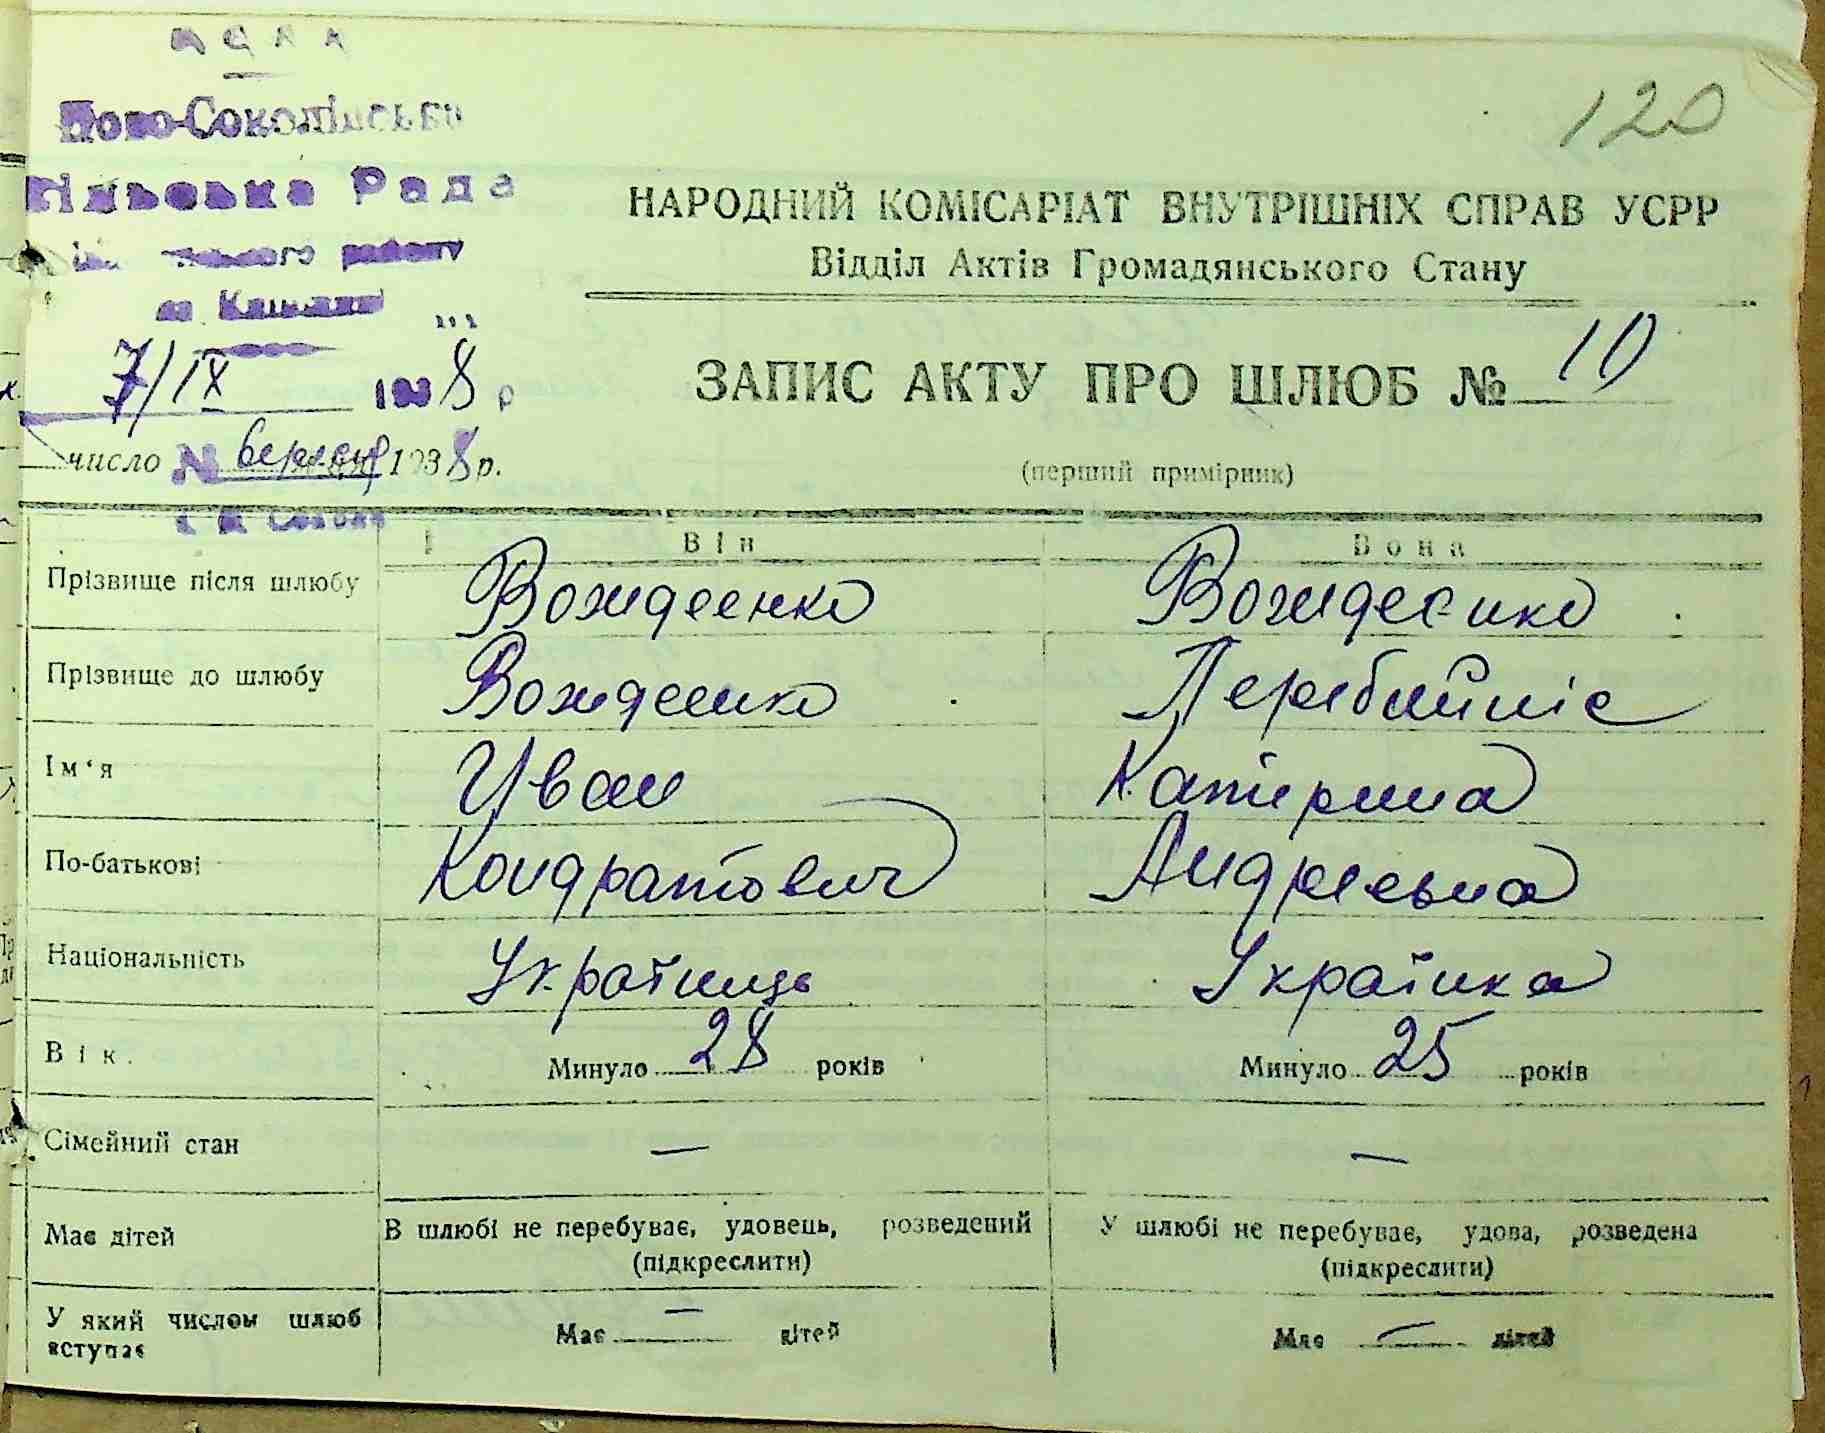 УСРР
Ново-Соколівська
Сільська Рада
району
120
НАРОДНИЙ КОМІСАРІАТ ВНУТРІШНІХ СПРАВ УСРР
Відділ Актів Громадянського Стану
7/IX 1938 р
ЗАПИС АКТУ ПРО ШЛЮБ № 10
число вересня 1938 р.
(перший примірник)
Він Вона
Прізвище після шлюбу Вождеенко Вождеенко
Прізвище до шлюбу Вожденко Перебийніс
Ім‘я Иван Катерина
По-батькові Кондратович Андреевна
Національність Українець Українка
Вік. Минуло 28 років Минуло 25 років
Сімейний стан — —
Має дітей В шлюбі не перебуває, удовець, розведений У шлюбі не перебуває, удова, розведена
(підкреслити) (підкреслити)
У який числом шлюб вступає Має — дітей Має — дітей